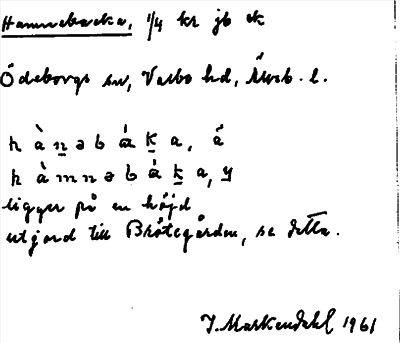 Hamnebacka, 1/4 kr jb ek
Ödeborgs sn, Valbo hd, Älvsb. l.
h à n ə b á k a, ä
h à m n ə b á k a, y
ligger på en höjd
utjord till Bråtegården, se detta.
J. Markendahl 1961